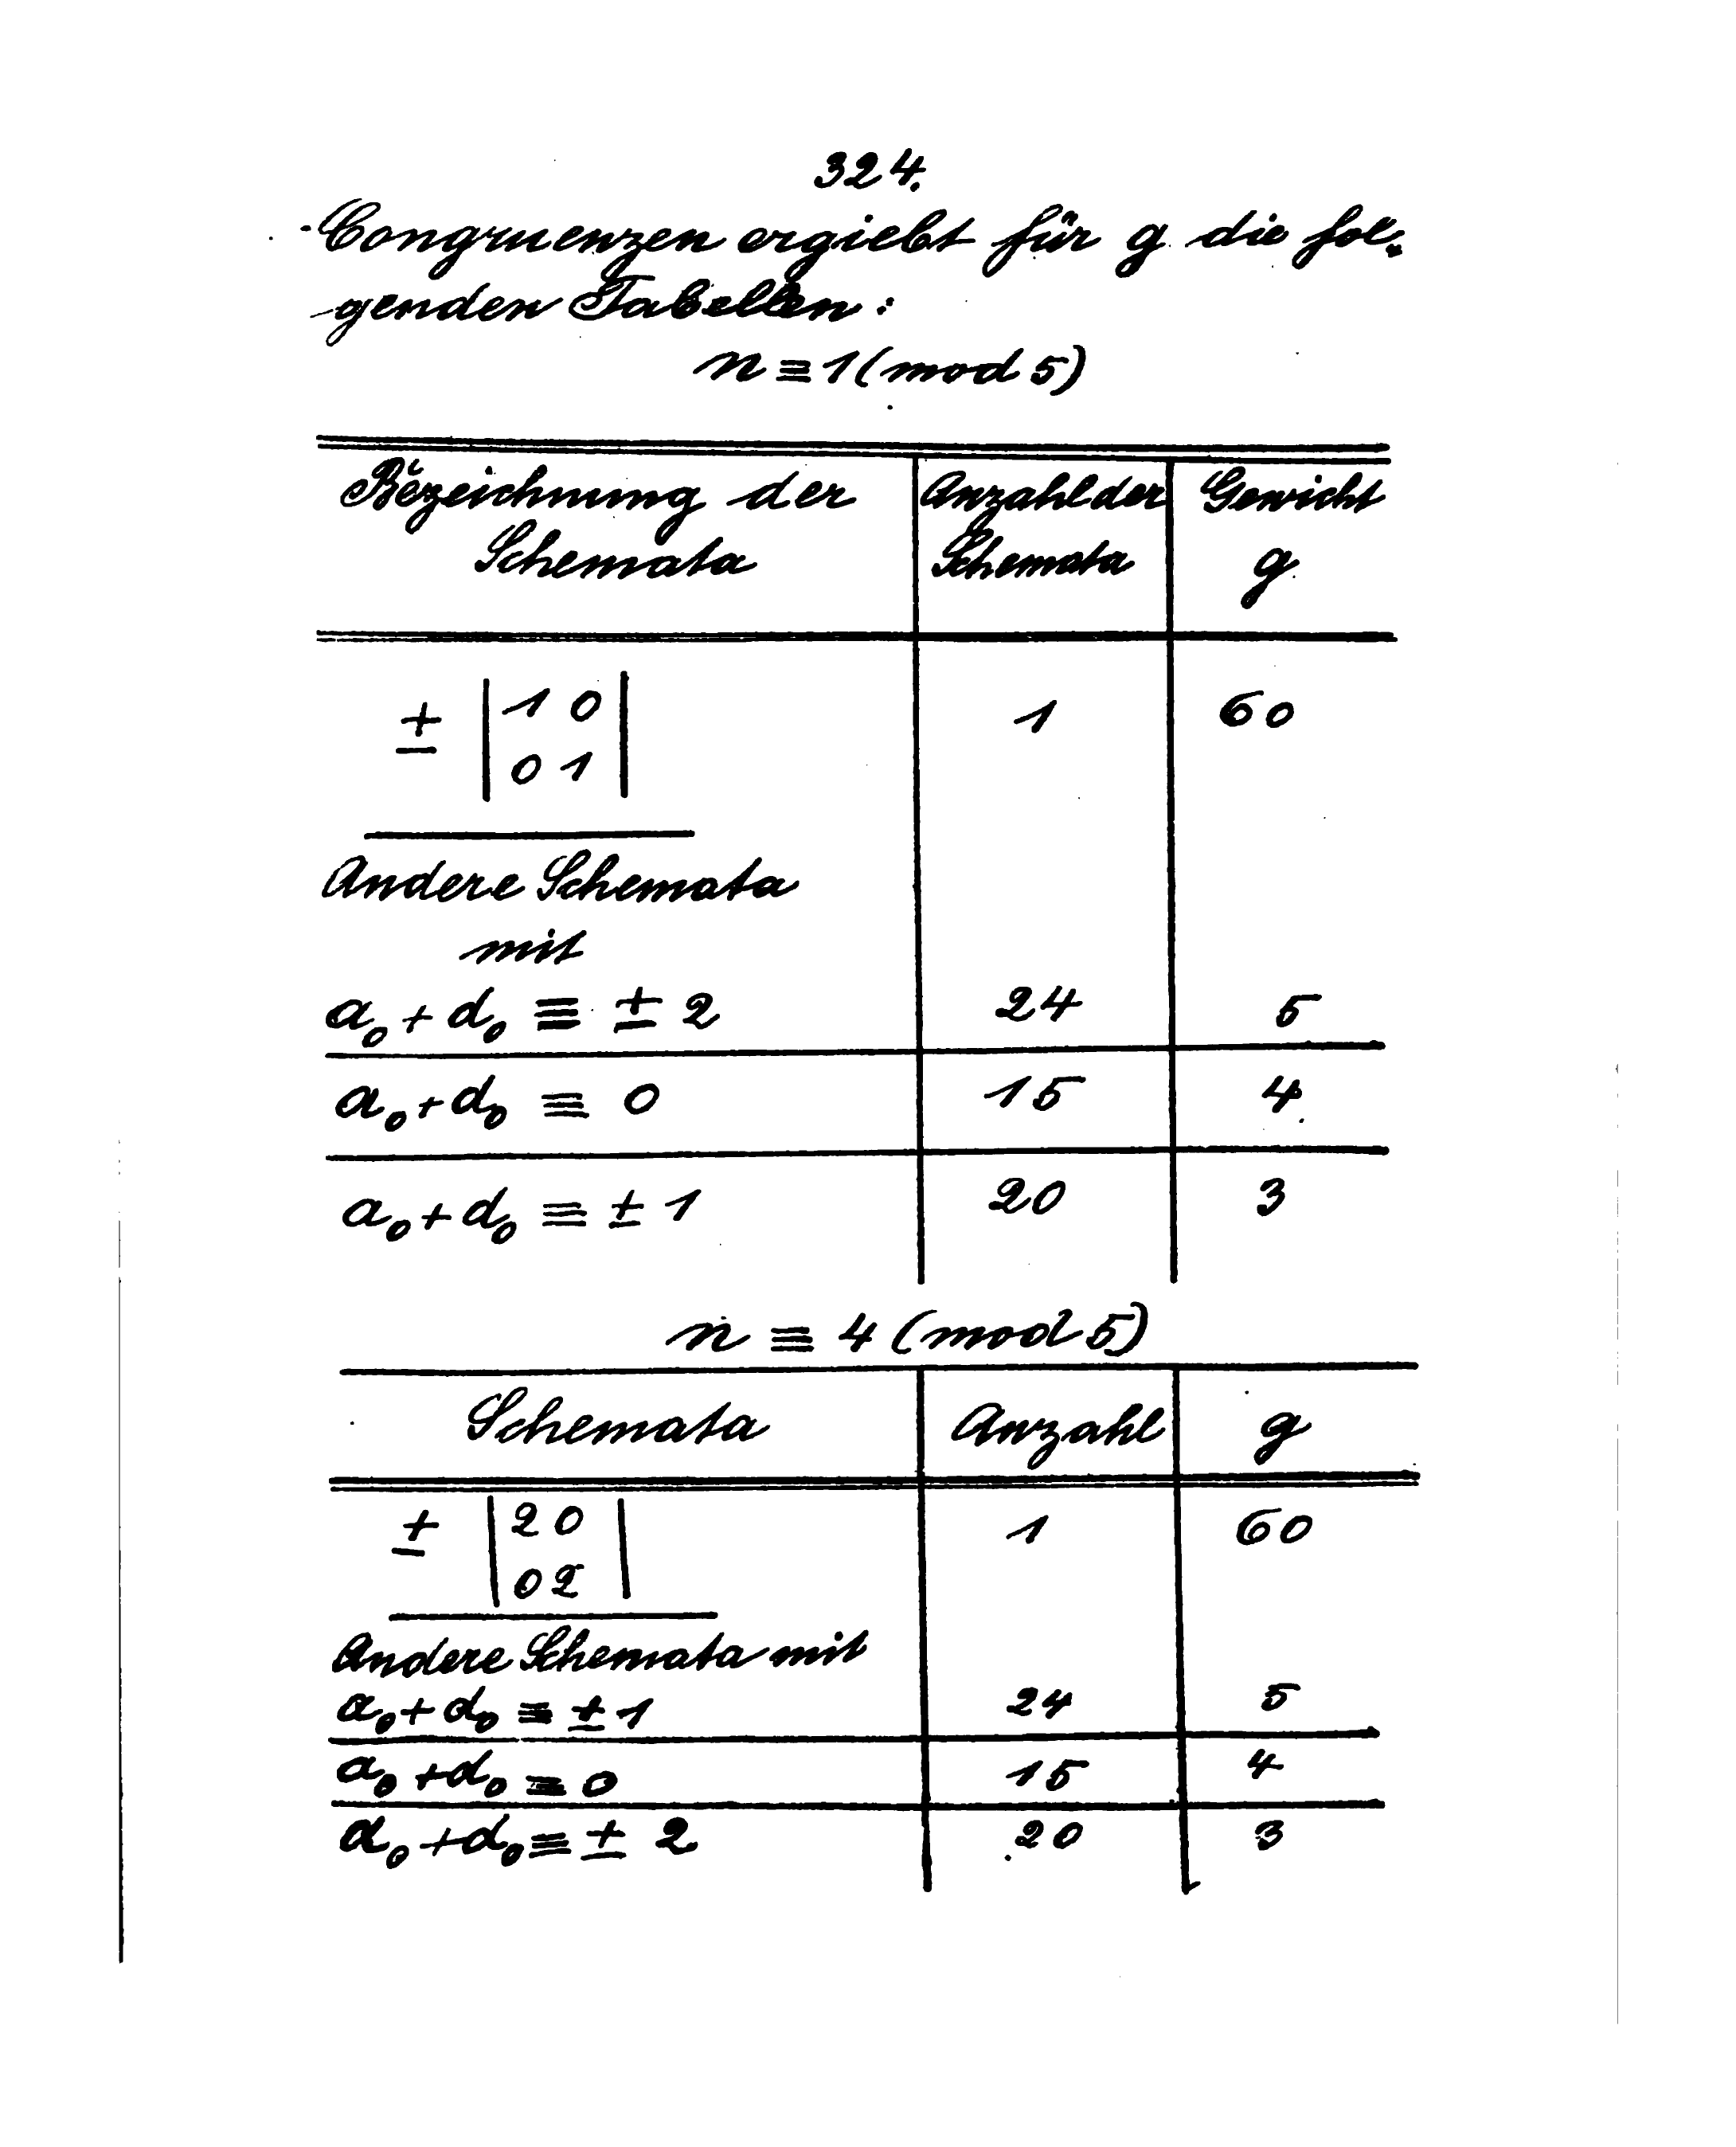 324.
Congruenzen ergiebt für g die fol-
genden Tabellen:
n ≡ 1 (mod 5)
Bezeichnung der Schemata | Anzahl der Schemata | Gewicht g
± | 1 0 | 1 60
| 0 1 |
Andere Schemata
mit
a₀ + d₀ ≡ ± 2 24 5
a₀ + d₀ ≡ 0 15 4
a₀ + d₀ ≡ ± 1 20 3
n ≡ 4 (mod 5)
Schemata Anzahl g
± | 2 0 | 1 60
| 0 2 |
Andere Schemata mit
a₀ + d₀ ≡ ± 1 24 5
a₀ + d₀ ≡ 0 15 4
a₀ + d₀ ≡ ± 2 20 3